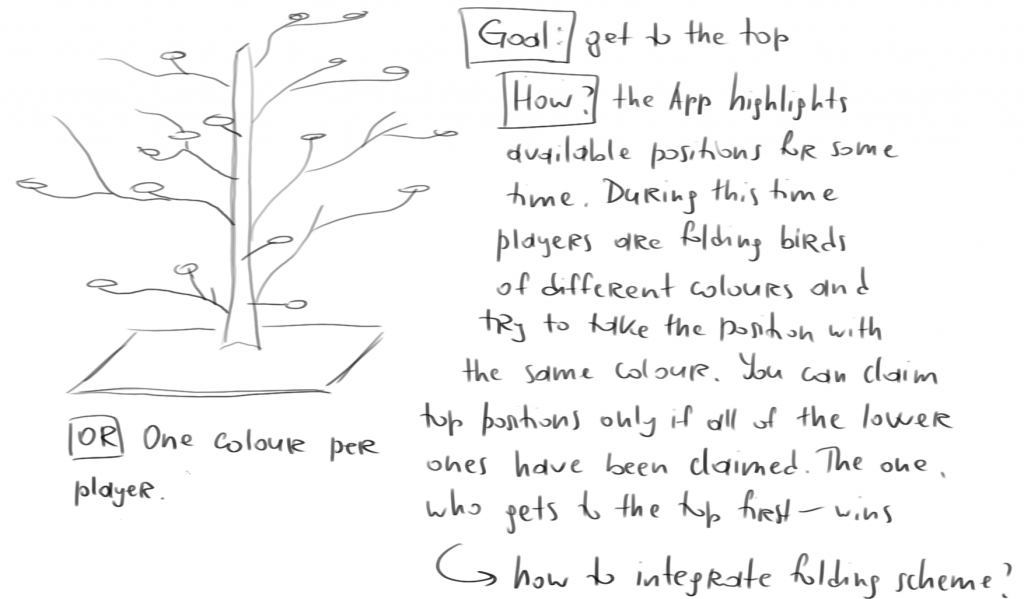 Goal: get to the top
How? the App highlights
available positions for some
time. During this time
players are folding birds
of different colours and
try to take the position with
the same colour. You can claim
top positions only if all of the lower
ones have been claimed. The one,
who gets to the top first – wins
how to integrate folding scheme?
OR One colour per
player.